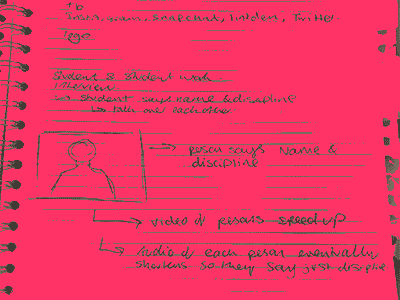 Team, Snapchat, linkden, Twitter
Student & Student walk
interview
→ Student says name & discipline
↳ talk over each other
→ person says Name &
discipline
→ video of persons speed up
→ Audio of each person eventually
shortens so they say just discipline